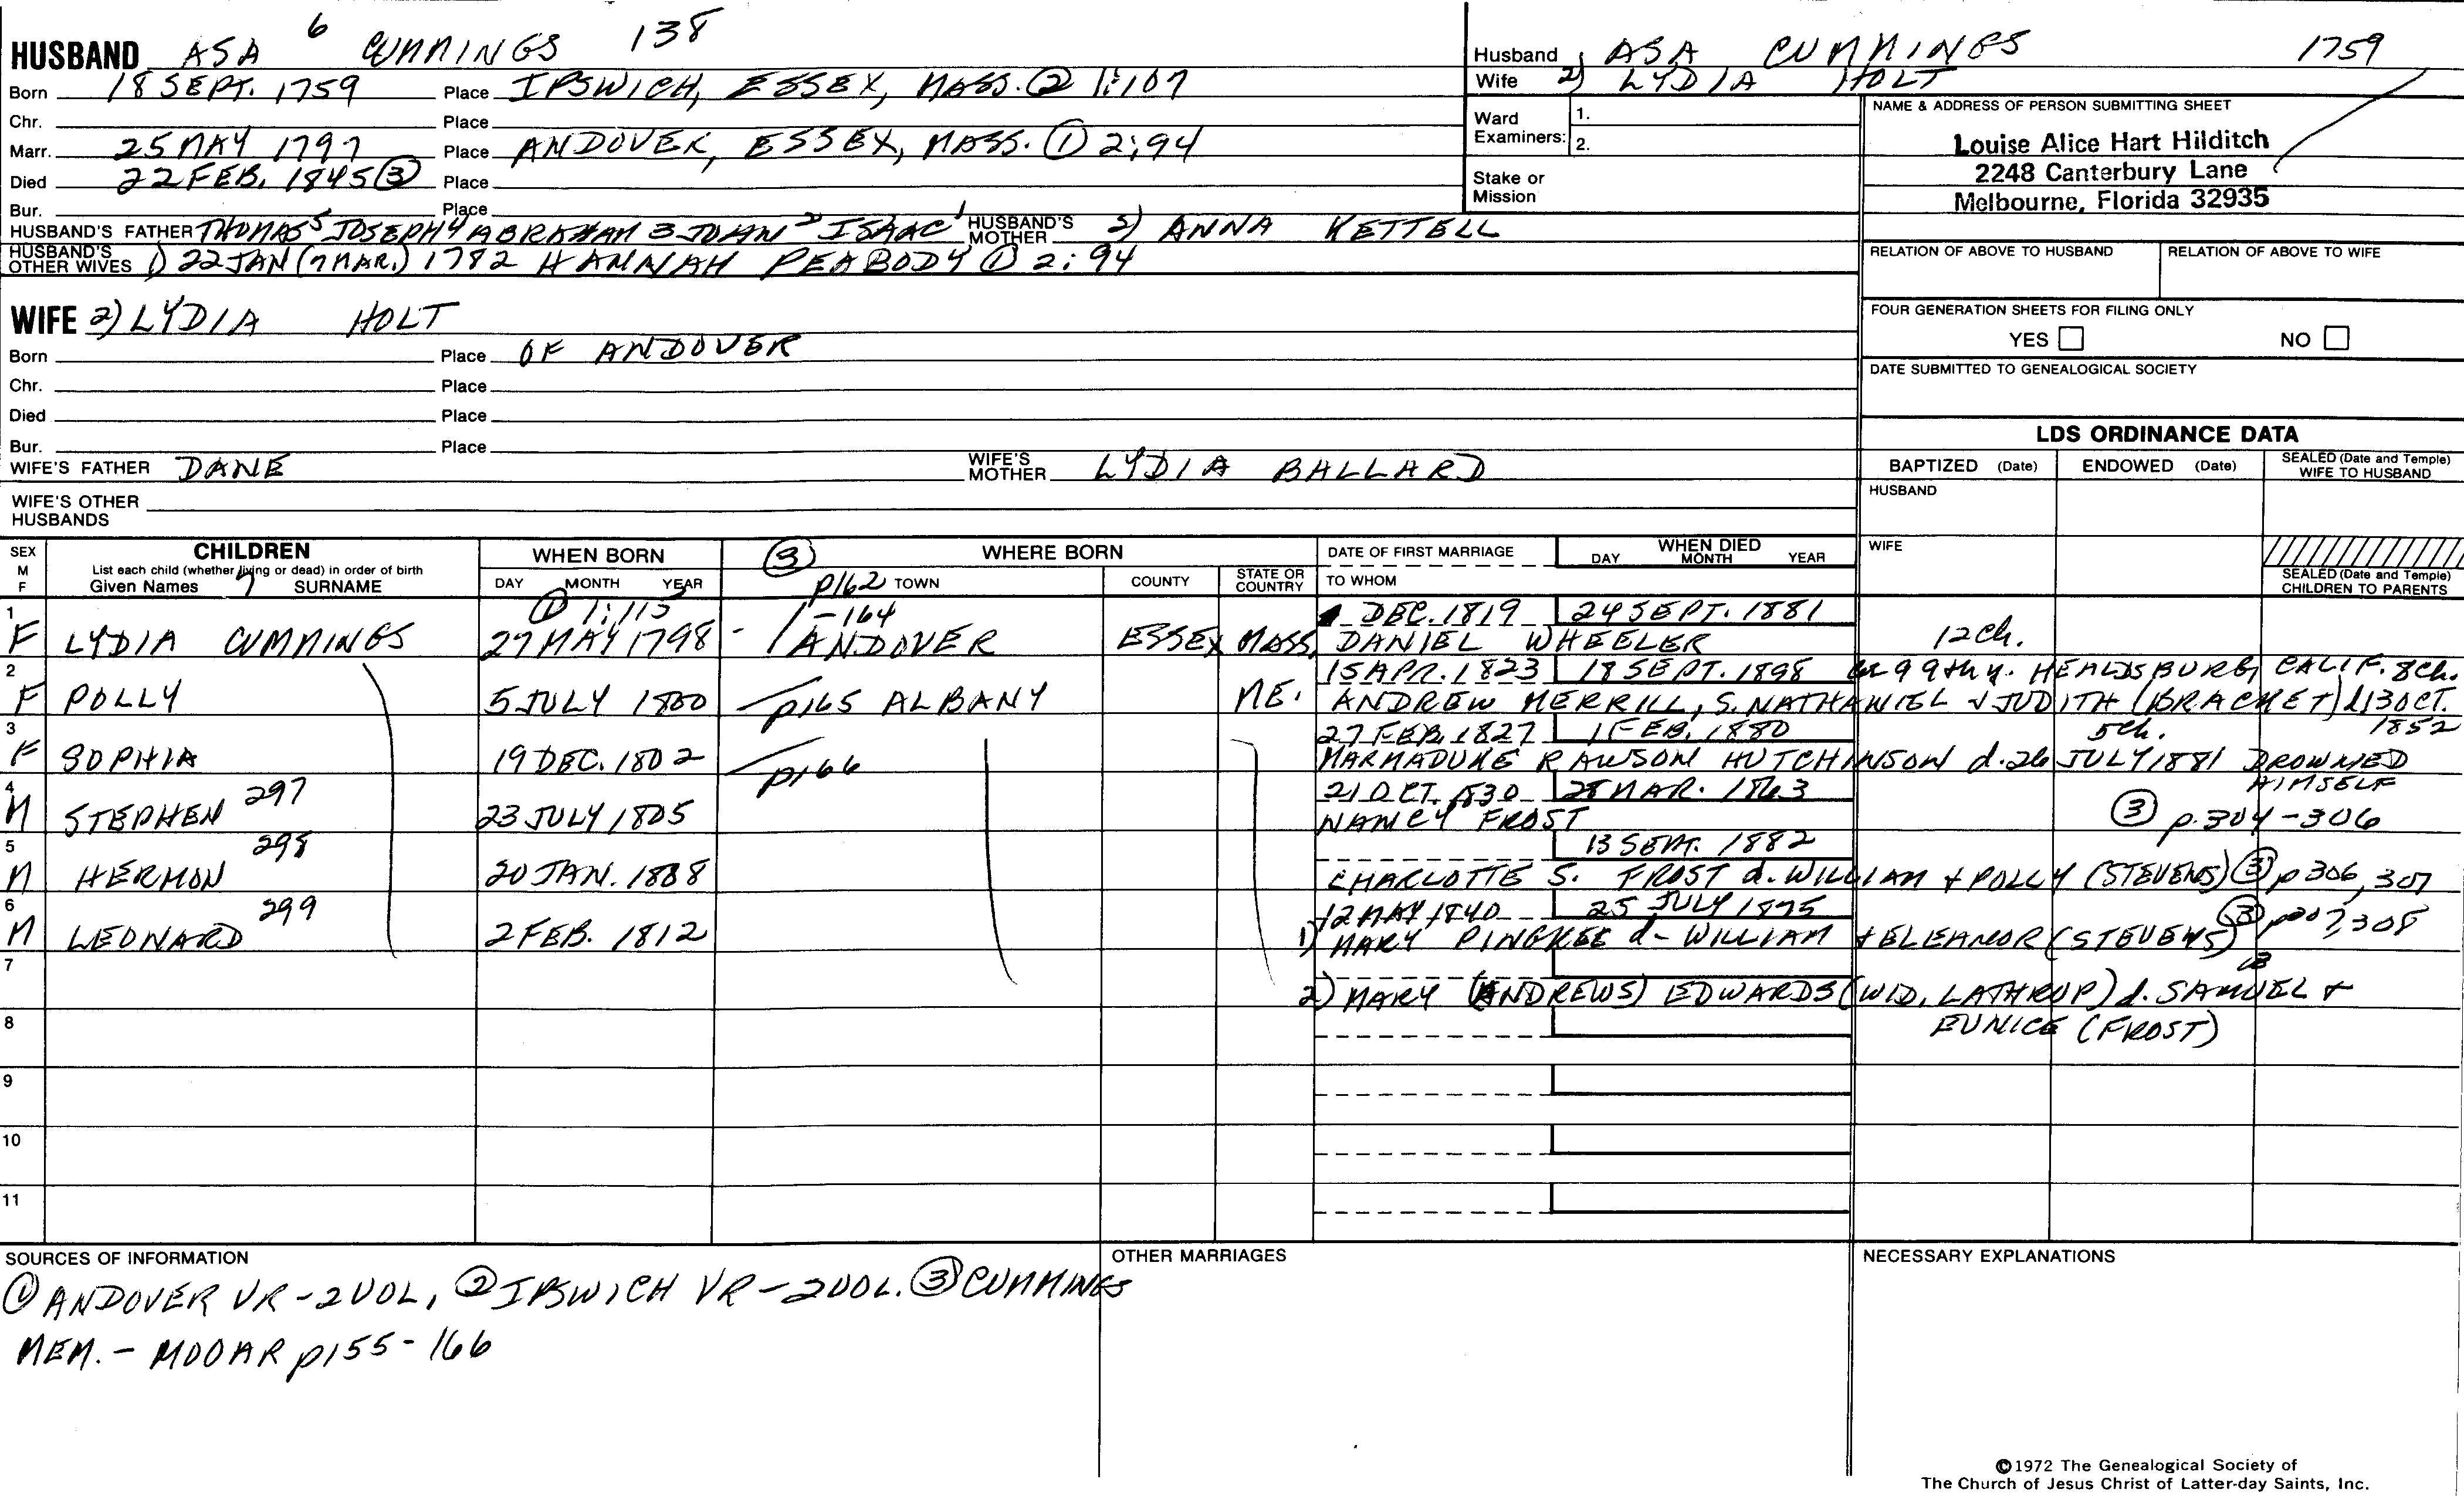 HUSBAND ASA 6 CUMMINGS 138
Born 18 SEPT. 1759 Place IPSWICH, ESSEX, MASS. ② 1:107
Chr. Place
Marr. 25 MAY 1797 Place ANDOVER, ESSEX, MASS. ① 2:94
Died 22 FEB. 1845 ③ Place
Bur. Place
HUSBAND'S FATHER THOMAS 5 JOSEPH 4 ABRAHAM 3 JOHN 2 ISAAC 1 HUSBAND'S MOTHER 2) ANNA KETTELL
HUSBAND'S OTHER WIVES 1) 22 JAN (7 MAR.) 1782 HANNAH PEABODY ① 2:94
Husband 1 ASA CUMMINGS 1759
Wife 2) LYDIA HOLT
Ward Examiners: 1.
2.
Stake or Mission
NAME & ADDRESS OF PERSON SUBMITTING SHEET
Louise Alice Hart Hilditch
2248 Canterbury Lane
Melbourne, Florida 32935
RELATION OF ABOVE TO HUSBAND RELATION OF ABOVE TO WIFE
FOUR GENERATION SHEETS FOR FILING ONLY
YES NO
DATE SUBMITTED TO GENEALOGICAL SOCIETY
WIFE 2) LYDIA HOLT
Born Place OF ANDOVER
Chr. Place
Died Place
Bur. Place
WIFE'S FATHER DANE WIFE'S MOTHER LYDIA BALLARD
WIFE'S OTHER HUSBANDS
LDS ORDINANCE DATA
BAPTIZED (Date) ENDOWED (Date) SEALED (Date and Temple) WIFE TO HUSBAND
HUSBAND
WIFE
SEALED (Date and Temple) CHILDREN TO PARENTS
SEX M F CHILDREN
List each child (whether living or dead) in order of birth
Given Names 7 SURNAME
WHEN BORN
DAY MONTH YEAR
③ WHERE BORN
p162 TOWN COUNTY STATE OR COUNTRY
DATE OF FIRST MARRIAGE
TO WHOM
WHEN DIED
DAY MONTH YEAR
① 1:113 -164 DEC. 1819 24 SEPT. 1881
1 F LYDIA CUMMINGS 27 MAY 1798 - ANDOVER ESSEX MASS. DANIEL WHEELER 12 ch.
15 APR. 1823 18 SEPT. 1898 99th y. HEALDSBURG CALIF. 8 ch.
2 F POLLY 5 JULY 1800 p165 ALBANY ME. ANDREW MERRILL, S. NATHANIEL & JUDITH (BRACKET) d 13 OCT. 1852
27 FEB. 1827 1 FEB. 1880 5 ch.
3 F SOPHIA 19 DEC. 1802 p166 MARMADUKE RAWSON HUTCHINSON d. 26 JULY 1881 DROWNED HIMSELF
297 21 OCT. 1830 28 MAR. 1863
4 M STEPHEN 23 JULY 1805 NANCY FROST ③ p. 304-306
298 13 SEPT. 1882
5 M HERMON 20 JAN. 1808 CHARLOTTE S. FROST d. WILLIAM & POLLY (STEVENS) ③ p 306, 307
299 12 MAY 1840 25 JULY 1875
6 M LEONARD 2 FEB. 1812 1) MARY PINGREE d- WILLIAM & ELEANOR (STEVENS) ③ p 307, 308
7
2) MARY (ANDREWS) EDWARDS (WID. LATHROP) d. SAMUEL &
8 EUNICE (FROST)
9
10
11
SOURCES OF INFORMATION
① ANDOVER VR - 2 VOL, ② IPSWICH VR - 2 VOL. ③ CUMMINGS
MEM. - MOOAR p155-166
OTHER MARRIAGES
NECESSARY EXPLANATIONS
©1972 The Genealogical Society of
The Church of Jesus Christ of Latter-day Saints, Inc.